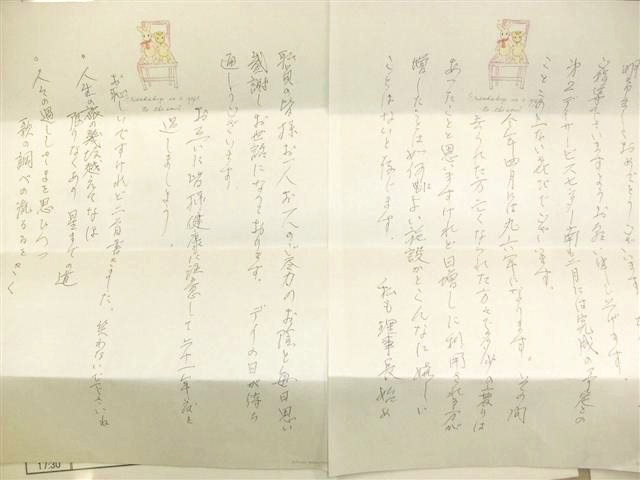 明けましておめでとうございます。
ご指導下さいますようお願い申し上げます。
第2デイサービスセンター南も二月には完成の予定との
こと この上ない喜びでございます。
今年四月には 年になります。その間
去られた方 亡くなられた方 の変りは
あったことと思いますけれど日増しに利用される方が
増したことは如何によい施設かとこんなに嬉しい
ことはないと存じます。 私も理事長始め
Friendship is a gift
職員の皆様お一人お一人のご尽力のお陰と毎日思い
感謝しお世話になっております。 デイの日が待ち
遠しうございます
お互いに皆様健康に注意して 二十一年度を
過しましょう。
お恥しいですけれど二首書きました。笑わないで下さいね
人生の旅の幾坂越えてなほ
限りなくあり 星までの道
人々の過ししさまを思ひつつ
歌の調べの流るるをきく
Friendship is a gift
17:30